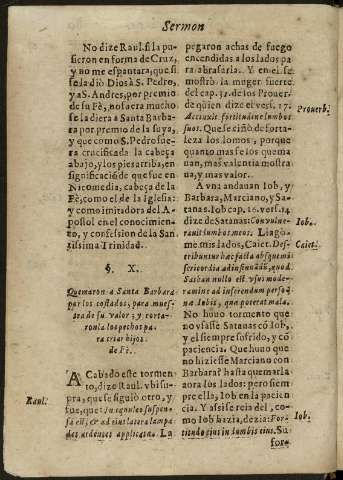 Sermon
No dize Raul. si la pu-
sieron en forma de Cruz,
y no me espantara, que si
se la diò Dios à S. Pedro,
y a S. Andres, por premio
de su Fè, no fuera mucho
se la diera a Santa Barba-
ra por premio de la suya,
y que como S. Pedro fue-
ra crucificada la cabeça
abajo, y los pies arriba, en
significació de que fue en
Nicomedia, cabeça de la
Fè, como el de la Iglesia:
y como imitadora del A-
postol en el conocimien-
to, y confession de la San-
tissima Trinidad.
§. X.
Quemaron a Santa Barbara
por los costados, para mues-
tra de su valor; y corta-
ronla los pechos pa-
ra criar hijos
de Fè.
Acabado esse tormen-
to, dize Raul. vbi su-
pra, que se siguiò otro, y
fue, que: In equuleo suspen-
sa est, & ad eius latera lampa-
des ardentes applicata. La
Raul.
pegaron achas de fuego
encendidas a los lados pa
ra abrasarla. Y en el se
mostrò la muger fuerte
del cap. 31. de los Prouer.
de quien dize el vers. 17.
Accinxit fortitudine lumbos
suos. Que se ciñò de fortale-
za los lomos, porque
quanto mas se los quema
uan, mas valentia mostra
ua, y mas valor.
Prouerb.
A vna andauan Iob, y
Barbara, Marciano, y Sa-
tanas. Iob cap. 16. vers. 14
dize de Satanas: Conuulne-
rauit lumbos meos. Llagò-
me mis lados, Caiet. Des-
tribuntur hæc facta absque mi
sericordia ad insinuādū, quod
Sathan nullo est vsus mode-
ramine ad inferendum perso-
na Iobis, qua poterat mala.
Iob.
Caiet.
No huuo tormento que
no vsasse Satanas cõ Iob,
y el siempre sufrido, y cõ
paciencia. Que huuo que
no hiziesse Marciano con
Barbara? hasta quemarla
aora los lados: pero siem
pre ella, Iob en la pacien
cia. Y assi se reia del, co-
mo Iob hazia, dezia: For-
titudo eius in lumbis eius. Su
Iob.
for-